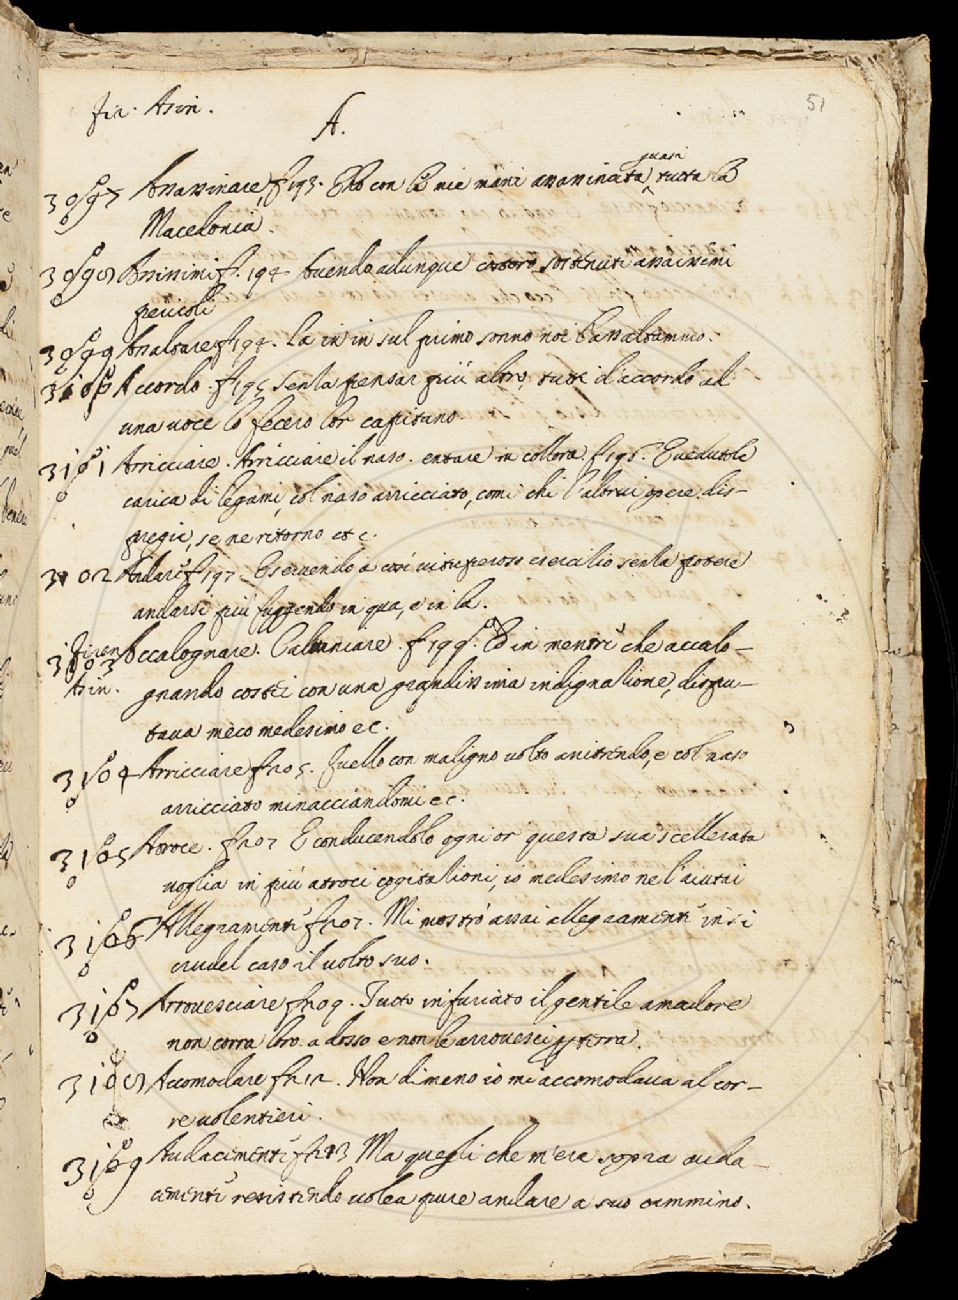 Fir. Asin.
A.
51
3097 Assassinare, f 193. Ebbi con le mie mani assassinata quasi tutta la
Macedonia.
3098 Assinimi f. 194 havendo adunque costoro sostenuti assaissimi
pericoli
3099 Assaltare f 194. La in in sul primo sonno noi l'assaltammo.
3100 Accordo. f 195 senza pensar più altro, tutti d'accordo ad
una voce lo fecero lor capitano
3101 Arricciare. Arricciare il naso. entrare in collora f 195. E vedutole
carica di legami, col naso arricciato, come chi l'altrui opere dis-
pregie, se ne ritorno etc.
3102 Andare f 197. Essendo a così vituperoso esercitio senza potere
andarsi più fuggendo in qua, e in la.
3103 Firen. Asin. Accalognare. Calunniare. f 199. Et in mentre che accalo-
gnando costei con una grandissima indignatione, dispu-
tava meco medesimo ec.
3104 Arricciare f 205. Quello con maligno volto anitrendo, e col naso
arricciato minacciandomi ec.
3105 Atroce. f 207 E conducendolo ogni or questa sua scellerata
voglia in più atroci cogitationi, io medesimo ne l'aiutai
3106 Allegramente f 207. Mi mostrò assai allegramente in si
crudel caso il volto suo.
3107 Arrovesciare f 209. Tutto infuriato il gentile amadore
non corra loro adosso e non le arrovesci per terra.
3108 Acomodare f 212. Non dimeno io mi accomodava al cor-
re volentieri.
3109 Audacemente f 213 Ma quegli che m'era sopra auda-
cemente resistendo volea pure andare a suo cammino.